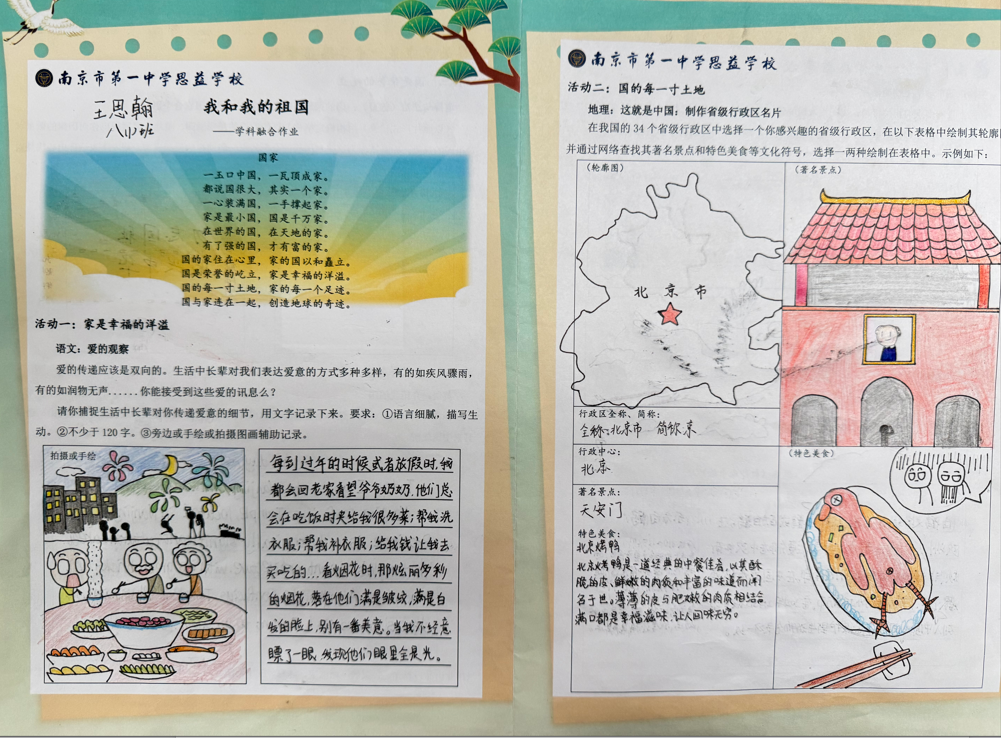 南京市第一中学思益学校
王思翰
八(1)班
我和我的祖国
——学科融合作业
国家
一玉口中国，一瓦顶成家。
都说国很大，其实一个家。
一心装满国，一手撑起家。
家是最小国，国是千万家。
在世界的国，在天地的家。
有了强的国，才有富的家。
国的家住在心里，家的国以和矗立。
国是荣誉的屹立，家是幸福的洋溢。
国的每一寸土地，家的每一个足迹。
国与家连在一起，创造地球的奇迹。
活动一：家是幸福的洋溢
语文：爱的观察
爱的传递应该是双向的。生活中长辈对我们表达爱意的方式多种多样，有的如疾风骤雨，
有的如润物无声......你能接受到这些爱的讯息么？
请你捕捉生活中长辈对你传递爱意的细节，用文字记录下来。要求：①语言细腻，描写生
动。②不少于120字。③旁边或手绘或拍摄图画辅助记录。
拍摄或手绘
每到过年的时候或者放假时,我
都会回老家看望爷爷奶奶,他们总
会在吃饭时夹给我很多菜;帮我洗
衣服;帮我补衣服;给我钱让我去
买吃的...看烟花时,那炫丽多彩
的烟花,落在他们满是皱纹,满是白
发的脸上,别有一番美意。当我不经意
瞟了一眼,发现他们眼里全是光。
南京市第一中学思益学校
活动二：国的每一寸土地
地理：这就是中国：制作省级行政区名片
在我国的34个省级行政区中选择一个你感兴趣的省级行政区，在以下表格中绘制其轮廓图
并通过网络查找其著名景点和特色美食等文化符号，选择一两种绘制在表格中。示例如下：
（轮廓图）
北京市
（著名景点）
行政区全称、简称：
全称:北京市 简称:京
行政中心：
北京
著名景点：
天安门
特色美食：
北京烤鸭
北京烤鸭是一道经典的中餐佳肴,以其酥
脆的皮、鲜嫩的肉质和丰富的味道而闻
名于世。薄薄的皮与肥嫩的肉质相结合
满口都是幸福滋味,让人回味无穷。
（特色美食）